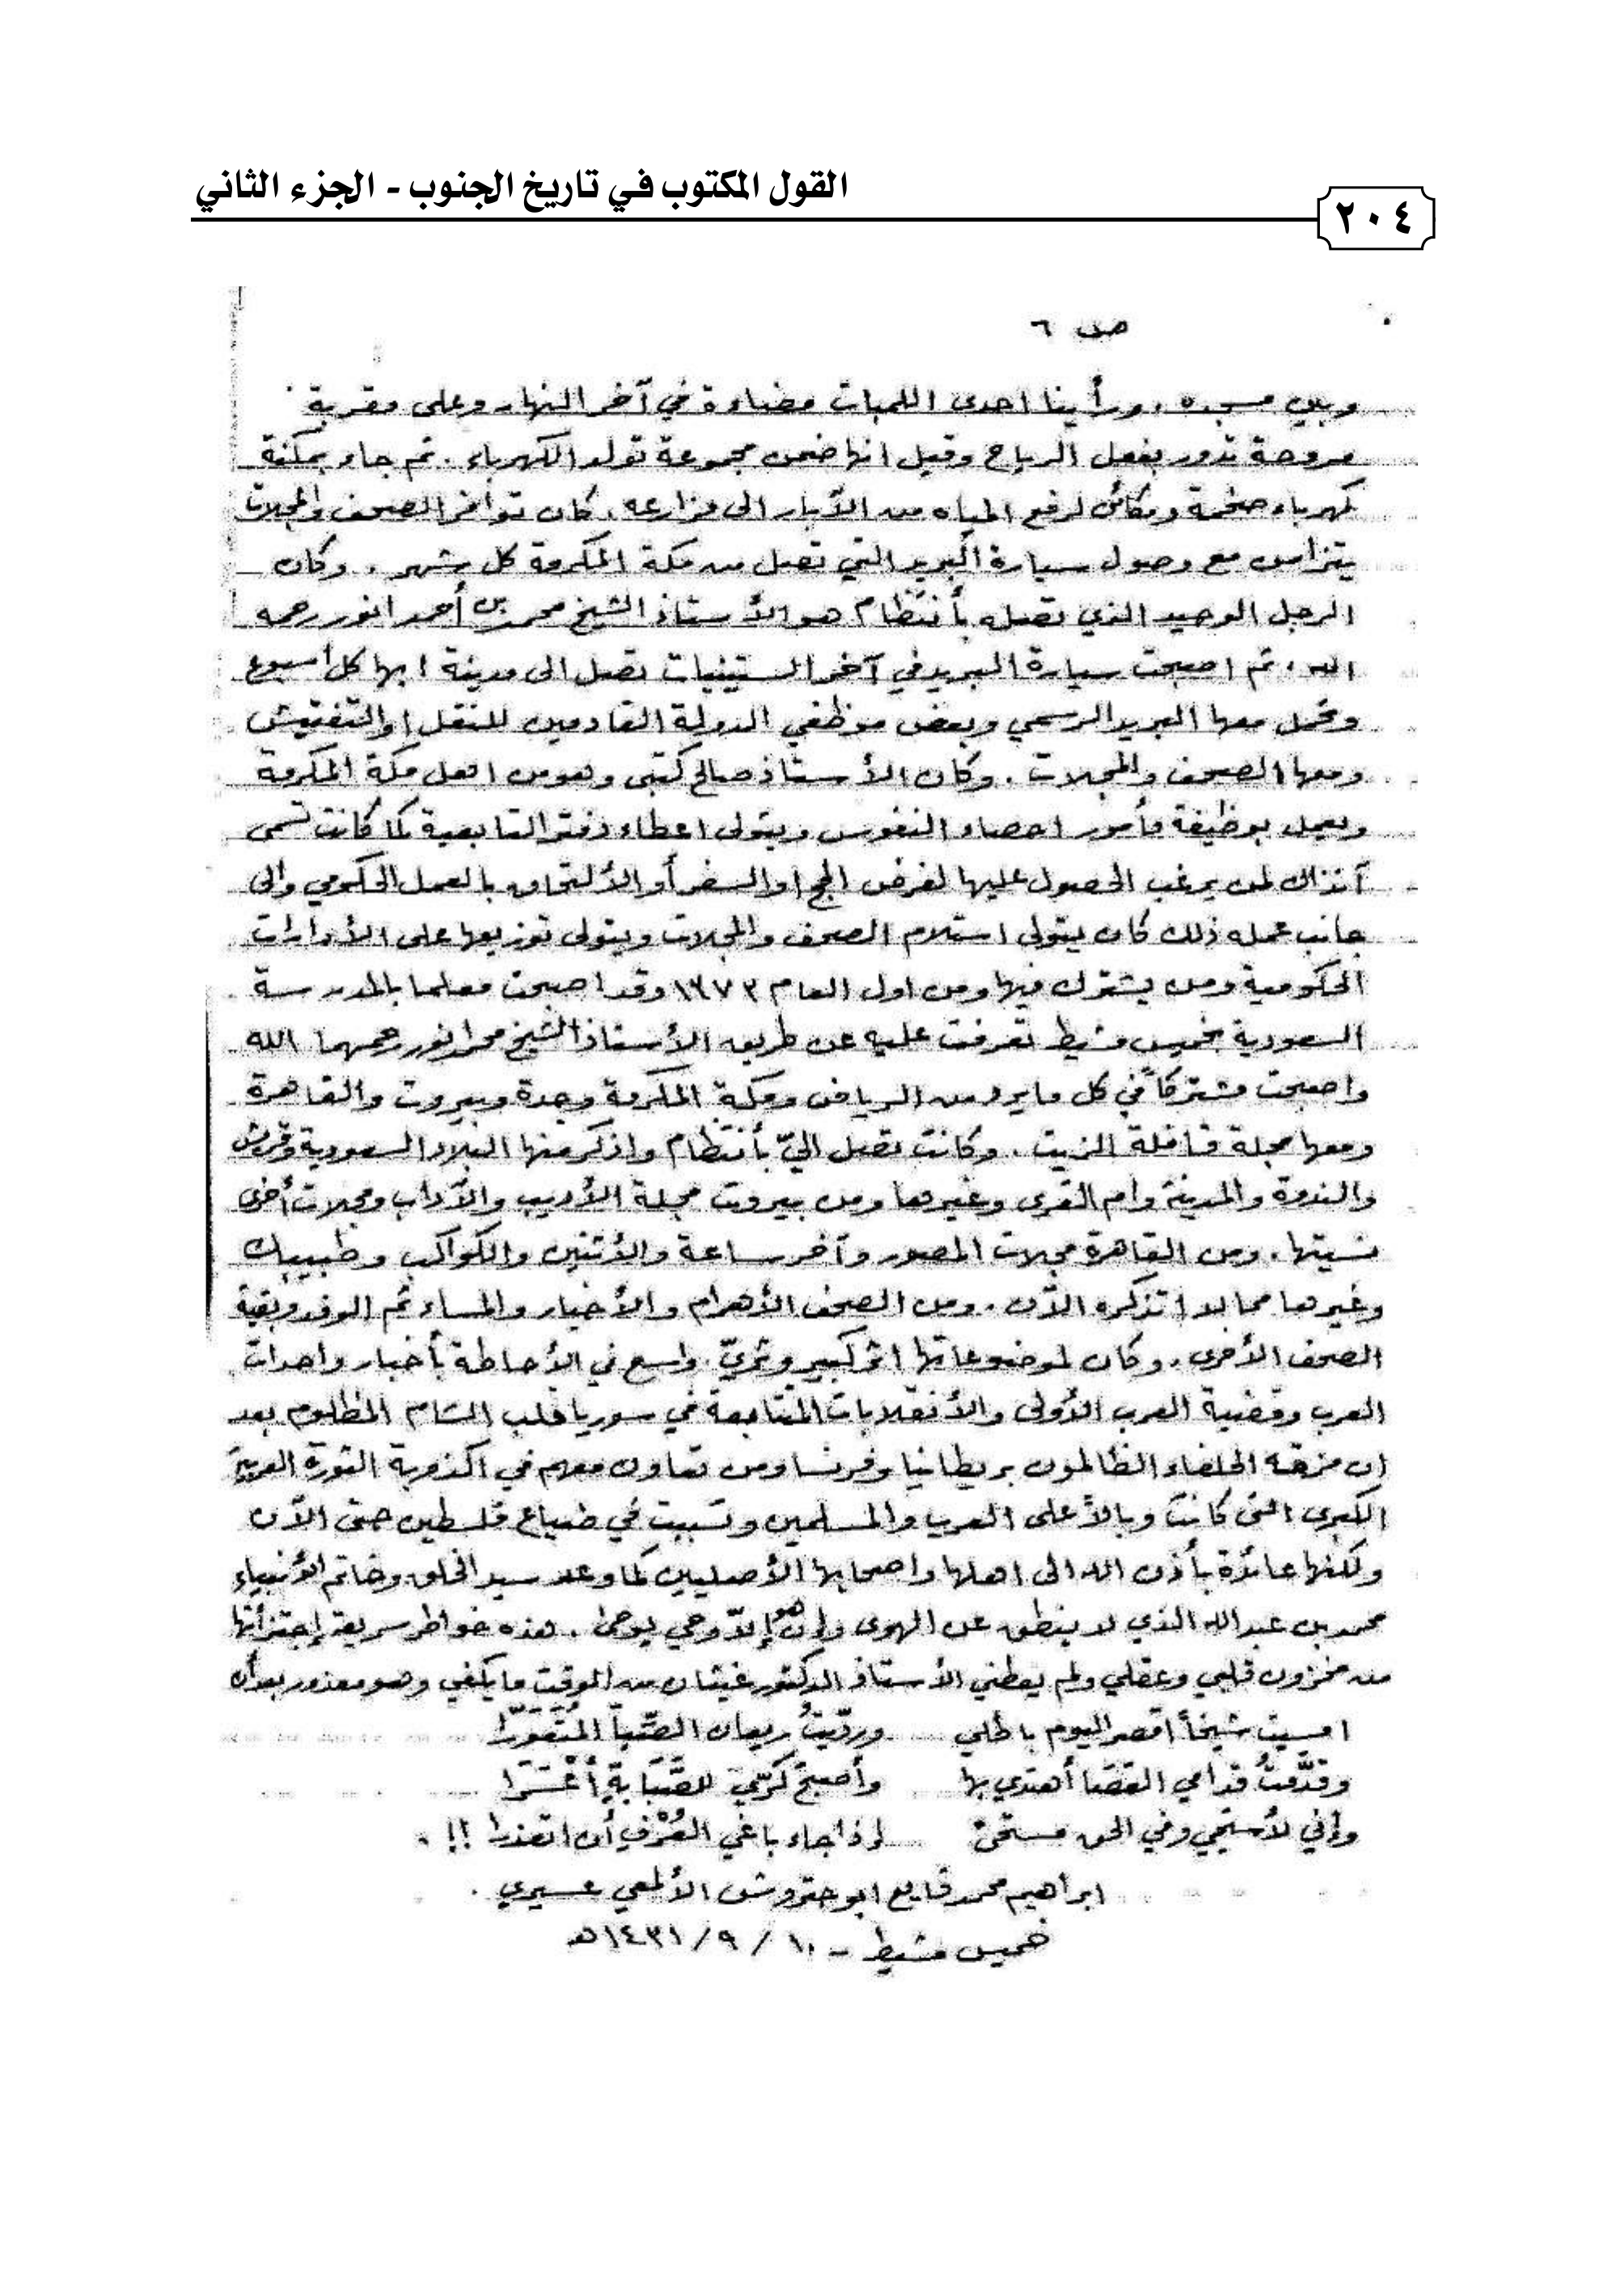 القول المكتوب في تاريخ الجنوب - الجزء الثاني
٢٠٤
ص ٦
وبين مسجده . ورأينا احدى اللمبات مضاءة في آخر النهار وعلى مقربة
مروحة تدور بفعل الرياح وقيل انها ضمن مجموعة تولد الكهرباء . ثم جاء بمكنة
كهرباء ضخمة ومكائن لرفع المياه من الآبار الى مزارعه . كان توافر الصحف والمجلات
يتزامن مع وصول سيارة البريد التي تصل من مكة المكرمة كل شهر . وكان
الرجل الوحيد الذي تصله بأنتظام هو الأستاذ الشيخ محمد بن أحمد انور رحمه
الله . ثم اصبحت سيارة البريد في آخر الستينيات تصل الى مدينة ابها كل اسبوع
وتحمل معها البريد الرسمي وبعض موظفي الدولة القادمين للنقل او التفتيش
ومعها الصحف والمجلات . وكان الأستاذ صالح كتبى وهو من اهل مكة المكرمة
ويعمل بوظيفة مأمور احصاء النفوس ويتولى اعطاء دفتر التابعية كما كانت تسمى
آنذاك لمن يرغب الحصول عليها لغرض الحج او السفر أو الألتحاق بالعمل الحكومي والى
جانب عمله ذلك كان يتولى استلام الصحف والمجلات ويتولى توزيعها على الأدارات
الحكومية ومن يشترك فيها ومن اول العام ١٣٧٣ وقد اصبحت معلما بالمدرسة
السعودية بخميس مشيط تعرفت عليه عن طريق الأستاذ الشيخ محمد انور رحمهما الله
واصبحت مشتركاً في كل ما يرد من الرياض ومكة المكرمة وجدة وبيروت والقاهرة
ومعها مجلة قافلة الزيت . وكانت تصل اليّ بأنتظام واذكر منها البلاد السعودية وقريش
والندوة والمدينة وام القرى وغيرها ومن بيروت مجلة الأديب والآداب ومجلات أخرى
نسيتها . ومن القاهرة مجلات المصور وآخر ساعة والأثنين والكواكب وطبيبك
وغيرها مما لا اتذكره الآن . ومن الصحف الأهرام والأخبار والمساء ثم الوفد وبقية
الصحف الأخرى . وكان لموضوعاتها اثر كبير وثريّ . واسع في الأحاطة بأخبار واحداث
العرب وقضية العرب الأولى والأنقلابات المتتابعة في سوريا قلب الشام المظلوم بعد
ان مزقه الحلفاء الظالمون بريطانيا وفرنسا ومن تعاون معهم في اكذوبة الثورة العربية
الكبرى التي كانت وبالاً على العرب والمسلمين وتسببت في ضياع فلسطين حتى الآن
ولكنها عائدة بأذن الله الى اهلها واصحابها الأصليين كما وعد سيد الخلق وخاتم الأنبياء
محمد بن عبدالله الذي لا ينطق عن الهوى وإن هو إلاّ وحي يوحى . هذه خواطر سريعة إجتزأتها
من مخزون قلبي وعقلي ولم يعطني الأستاذ الدكتور غيثان من الوقت ما يكفي وهو معذور بعد أن
امسيت شيخاً اقصر اليوم باطلي ورديّتُ ريعان الصّبا المُتَقَوَّرا
وقدَّمتُ قدامي العَصَا أهتدي بها وأصبح كرّي للصَّبَابةِ أعْسَرَا
وإني لأستحي وفي الحق مستحىً إذا جاء باغي العُرْفِ أن اتعذرا !! .
ابراهيم محمد فايع ابو حتروش الألمعي عسيري .
خميس مشيط - ١٠ / ٩ / ١٤٣١هـ